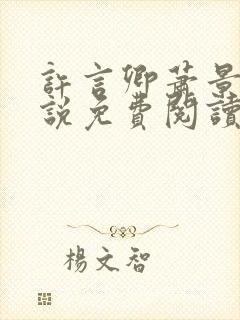 許言卿蕭景
說免費閱讀
楊文智